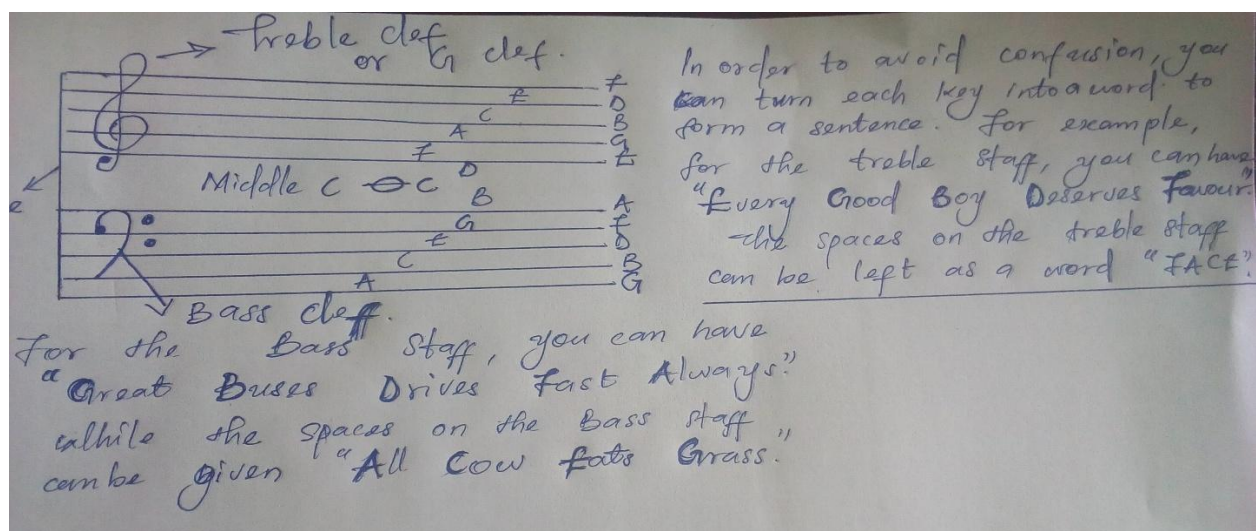 Treble clef
or G clef.
F
E
D
C
B
A
G
F
E
D
Middle C C
B
A
G
F
E
D
C
B
A
G
Bass cleff.
In order to avoid confusion, you
can turn each key into a word to
form a sentence. For example,
for the treble staff, you can have
"Every Good Boy Deserves Favour."
The spaces on the treble staff
can be left as a word "FACE".
For the Bass staff, you can have
"Great Buses Drives Fast Always."
while the spaces on the Bass staff
can be given "All Cow Eats Grass."